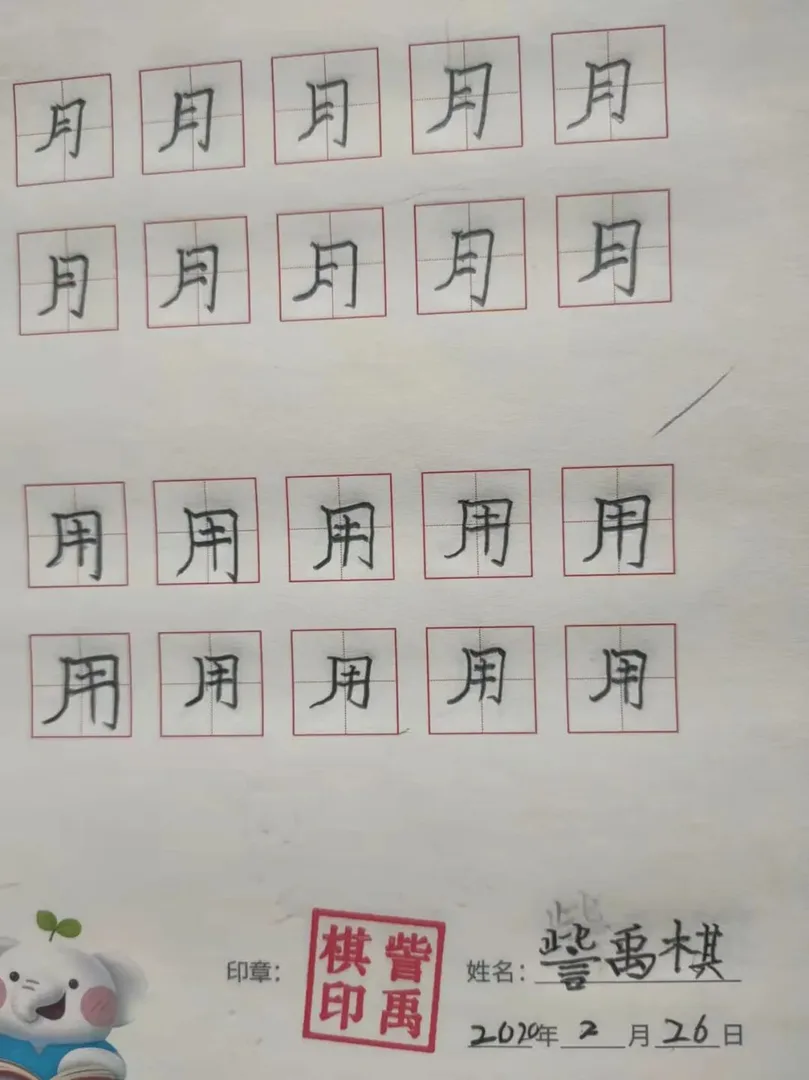 月 月 月 月 月
月 月 月 月 月
用 用 用 用 用
用 用 用 用 用
印章：
訾禹
棋印
姓名：訾禹棋
2020年2月26日